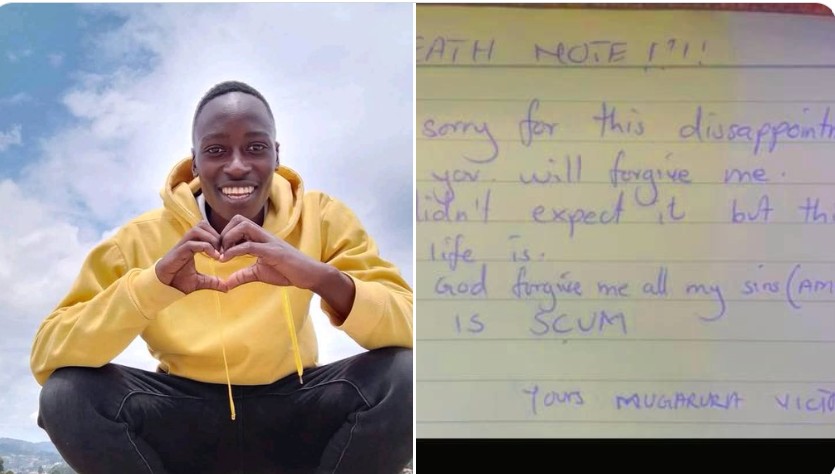 EATH NOTE !?!!
sorry for this dissappoint
you will forgive me.
didn't expect it but thi
life is.
God forgive me all my sins (AM
IS SCUM
Yours MUGARURA VICTO